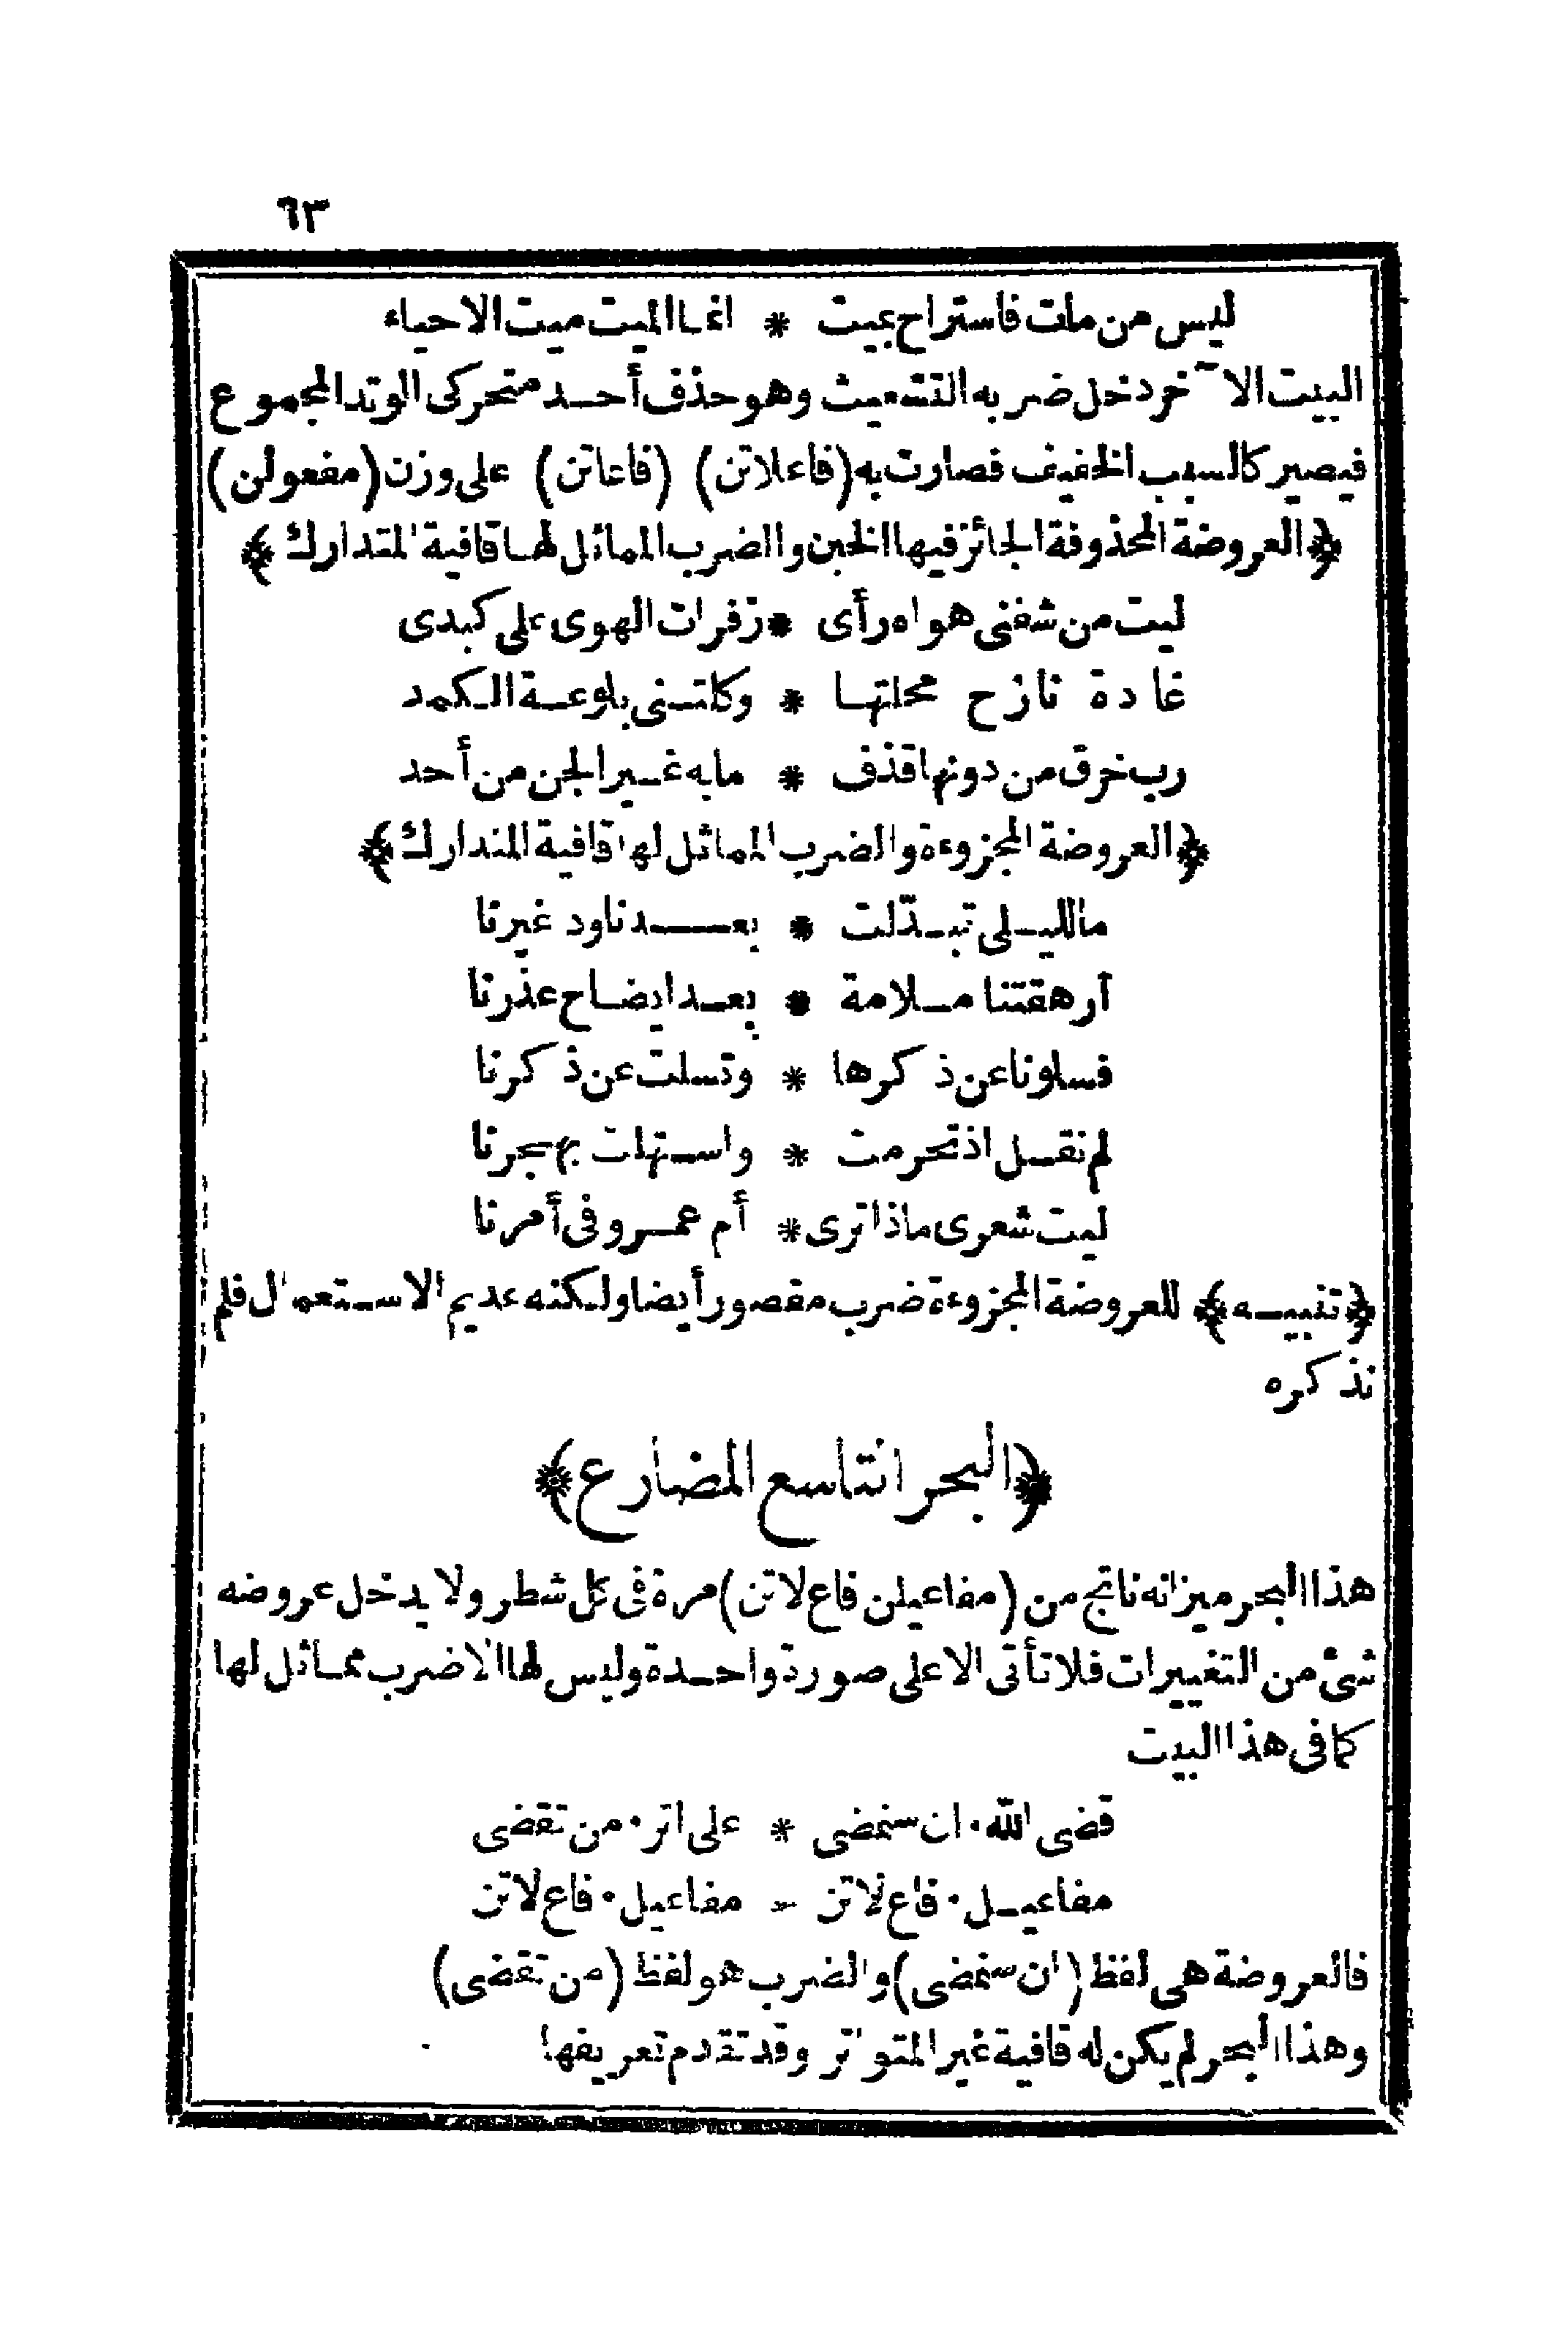 ٦٣
ليس من مات فاستراح بميت * انما الميت ميت الاحياء
البيت الآخر دخل ضربه التشعيث وهو حذف أحد متحركى الوتد المجموع
فيصير كالسبب الخفيف فصارت به (فاعلاتن) (فاعاتن) على وزن (مفعولن)
﴿العروضة المحذوفة الجائز فيها الخبن والضرب المماثل لها قافية المتدارك﴾
ليت من شفنى هواه رأى * زفرات الهوى على كبدى
غادة نازح محلتها * وكلتنى بلوعة الكمد
رب خرق من دونها قذف * مابه غير الجن من أحد
﴿العروضة المجزوءة والضرب المماثل لها قافية المتدارك﴾
ما لليلى تبدّلت * بعدنا ود غيرنا
أرهقتنا ملامة * بعد ايضاح عذرنا
فسلونا عن ذكرها * وتسلت عن ذكرنا
لم نقل اذ تحرمت * واستهلت بهجرنا
ليت شعرى ماذا ترى * أم عمرو فى أمرنا
﴿تنبيه﴾ للعروضة المجزوءة ضرب مقصور أيضا ولكنه عديم الاستعمال فلم
نذكره
﴿البحر التاسع المضارع﴾
هذا البحر ميزانه ناتج من (مفاعيلن فاع لاتن) مرة فى كل شطر ولا يدخل عروضه
شئ من التغييرات فلا تأتى الا على صورة واحدة وليس لها الا ضرب مماثل لها
كما فى هذا البيت
قضى الله · ان سنمضى * على اثر · من تقضى
مفاعيل · فاع لاتن - مفاعيل · فاع لاتن
فالعروضة هى لفظ (ان سنمضى) والضرب هو لفظ (من تقضى)
وهذا البحر لم يكن له قافية غير المتواتر وقد تقدم تعريفها